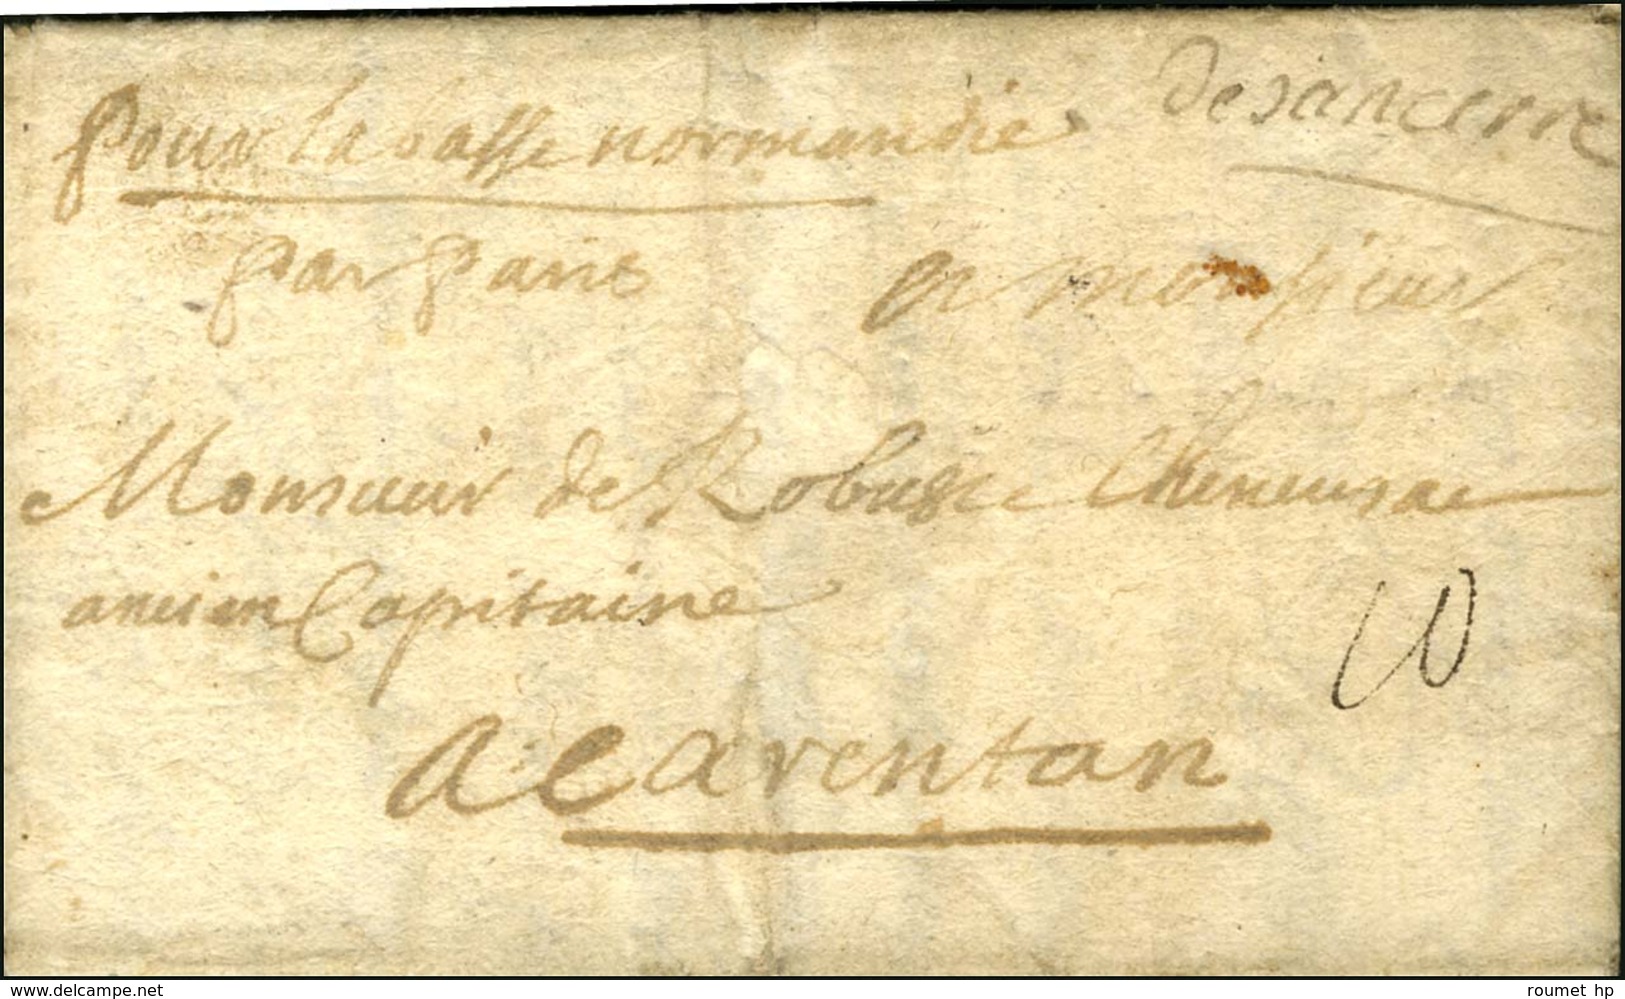 pour la basse normandie
desancerre
par paris
a monsieur
Monsieur de
ancien Capitaine
10
A Carentan
www.delcampe.net
roumet hp